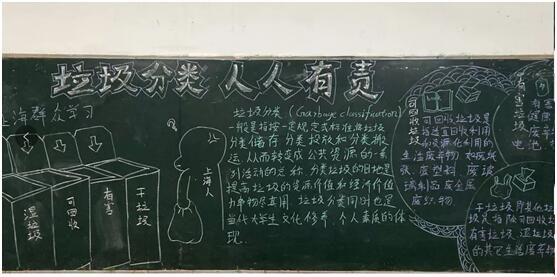 垃圾分类 人人有责
海群众学习
湿垃圾
可回收
有害
干垃圾
上海人
垃圾分类 (Garbage classification)
一般是指按一定规定或标准将垃圾
分类储存 分类投放和分类搬
运,从而转变成公共资源的一系
列活动的总称 分类垃圾的目的是
提高垃圾的资源价值和经济价值
力争物尽其用 垃圾分类同时也是
当代大学生文化修养,个人素质的体
现
可回收垃圾
可回收垃圾是
指适宜回收利用
和资源化利用的
生活废弃物,如废纸
张、废塑料、废玻
璃制品 废金属
废织物
有害垃圾
干垃圾
有害垃圾 湿垃圾
的其它生活废弃